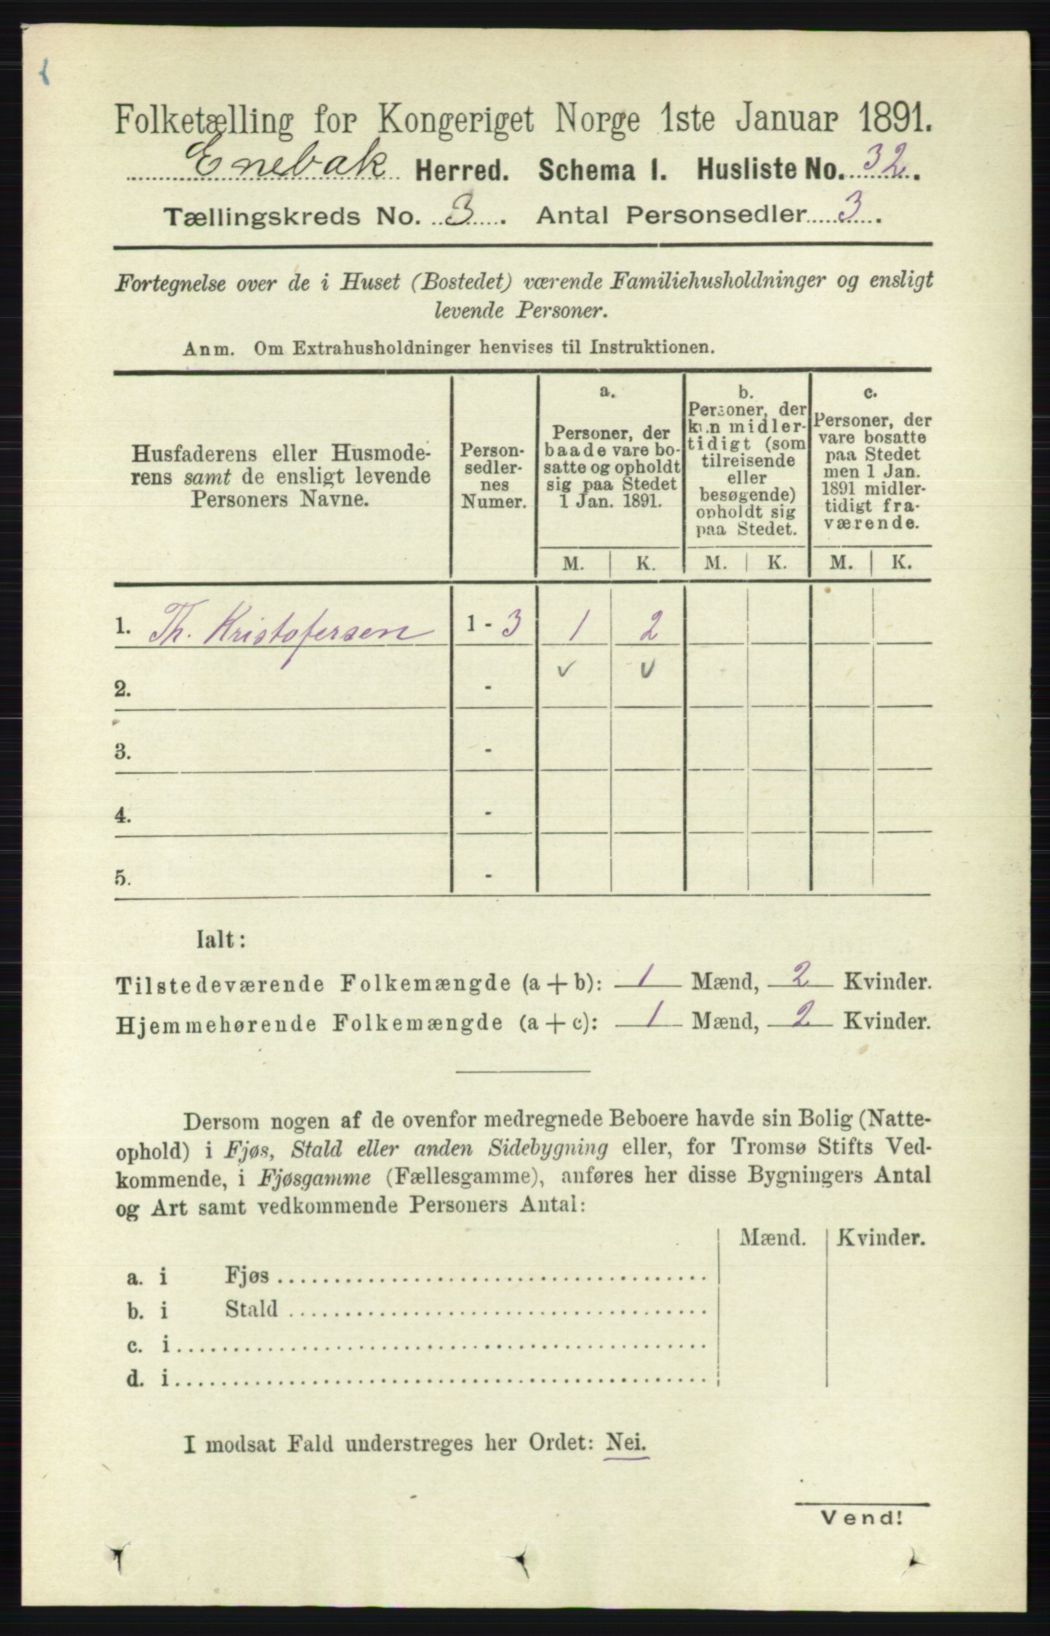 Folketælling for Kongeriget Norge 1ste Januar 1891.
Enebak Herred. Schema I. Husliste No. 32.
Tællingskreds No. 3. Antal Personsedler 3.
Fortegnelse over de i Huset (Bostedet) værende Familiehusholdninger og ensligt
levende Personer.
Anm. Om Extrahusholdninger henvises til Instruktionen.
Husfaderens eller Husmode-
rens samt de ensligt levende
Personers Navne.
Person-
sedler-
nes
Numer.
a.
Personer, der
baade vare bo-
satte og opholdt
sig paa Stedet
1 Jan. 1891.
b.
Personer, der
kun midler-
tidigt (som
tilreisende
eller
besøgende)
opholdt sig
paa Stedet.
c.
Personer, der
vare bosatte
paa Stedet
men 1 Jan.
1891 midler-
tidigt fra-
værende.
M. K. M. K. M. K.
1. Th. Kristofersen 1 - 3 1 2
2. -
3. -
4. -
5. -
Ialt:
Tilstedeværende Folkemængde (a + b): 1 Mænd, 2 Kvinder.
Hjemmehørende Folkemængde (a + c): 1 Mænd, 2 Kvinder.
Dersom nogen af de ovenfor medregnede Beboere havde sin Bolig (Natte-
ophold) i Fjøs, Stald eller anden Sidebygning eller, for Tromsø Stifts Ved-
kommende, i Fjøsgamme (Fællesgamme), anføres her disse Bygningers Antal
og Art samt vedkommende Personers Antal:
Mænd. Kvinder.
a. i Fjøs
b. i Stald
c. i
d. i
I modsat Fald understreges her Ordet: Nei.
Vend!